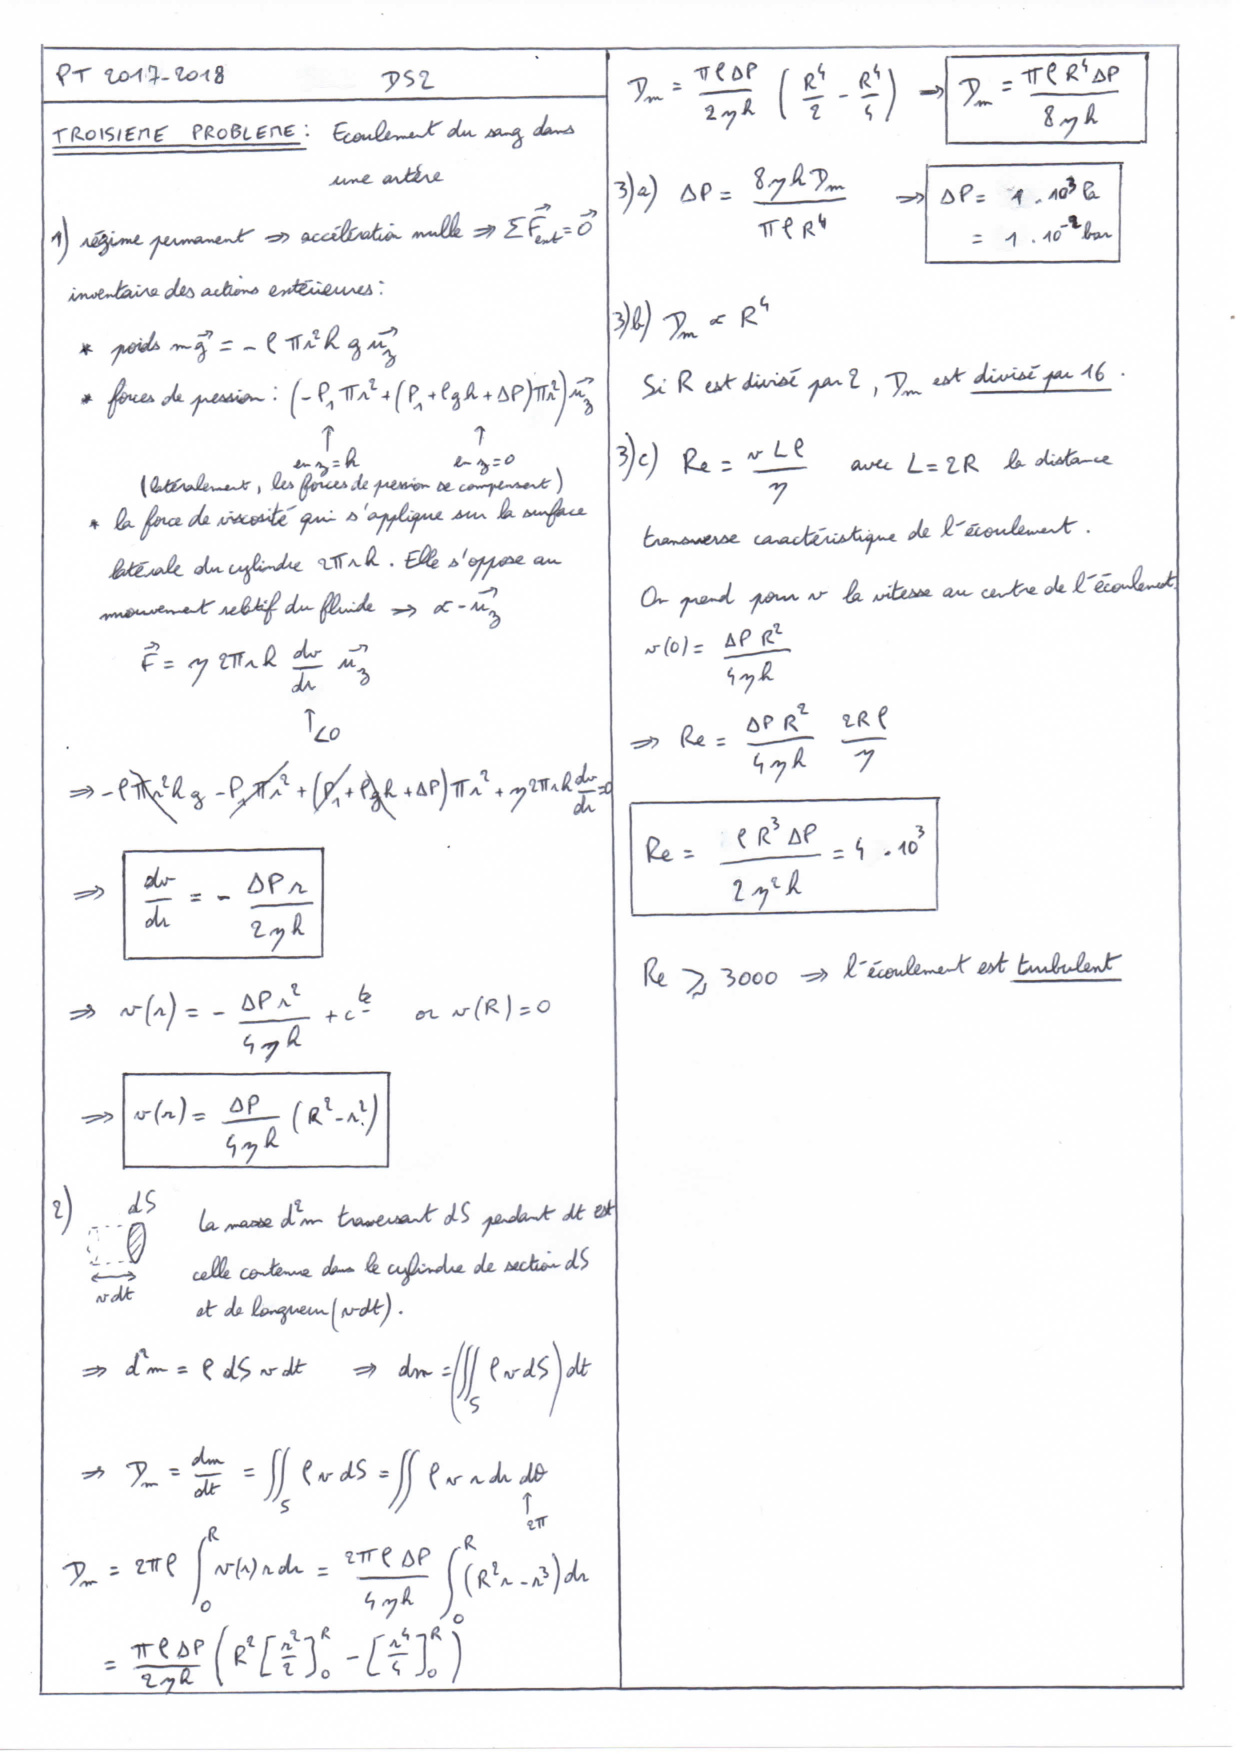 PT 2017-2018 DS2
TROISIEME PROBLEME : Ecoulement du sang dans
une artère
1) régime permanent ⇒ accélération nulle ⇒ Σ F⃗ext = 0⃗
inventaire des actions extérieures :
* poids m g⃗ = - ρ π r² h g u⃗z
* forces de pression : (- P₁ π r² + (P₁ + ρgh + ΔP) π r²) u⃗z
↑ ↑
en z = h en z = 0
(latéralement, les forces de pression se compensent)
* la force de viscosité qui s'applique sur la surface
latérale du cylindre 2πrh. Elle s'oppose au
mouvement relatif du fluide ⇒ ∝ - u⃗z
F⃗ = η 2πrh dv/dr u⃗z
↑ <0
⇒ - ρπr²hg - P₁πr² + (P₁ + ρgh + ΔP) πr² + η2πrh dv/dr = 0
⇒ dv/dr = - ΔP r / 2ηh
⇒ v(r) = - ΔP r² / 4ηh + cte or v(R) = 0
⇒ v(r) = ΔP / 4ηh (R² - r²)
2) dS
vdt
la masse d²m traversant dS pendant dt est
celle contenue dans le cylindre de section dS
et de longueur (vdt).
⇒ d²m = ρ dS v dt ⇒ dm = (∭_S ρ v dS) dt
⇒ Dm = dm/dt = ∬_S ρ v dS = ∬ ρ v r dr dθ
↑
2π
Dm = 2πρ ∫₀^R v(r) r dr = 2πρΔP / 4ηh ∫₀^R (R²r - r³) dr
= πρΔP / 2ηh (R² [r²/2]₀^R - [r⁴/4]₀^R)
Dm = πρΔP / 2ηh (R⁴/2 - R⁴/4) ⇒ Dm = πρR⁴ΔP / 8ηh
3)a) ΔP = 8ηhDm / πρR⁴ ⇒ ΔP = 1 . 10³ Pa
= 1 . 10⁻² bar
3)b) Dm ∝ R⁴
Si R est divisé par 2, Dm est divisé par 16.
3)c) Re = v L ρ / η avec L = 2R la distance
transverse caractéristique de l'écoulement.
On prend pour v la vitesse au centre de l'écoulement
v(0) = ΔP R² / 4ηh
⇒ Re = ΔP R² / 4ηh 2Rρ / η
Re = ρR³ΔP / 2η²h = 4 . 10³
Re ≳ 3000 ⇒ l'écoulement est turbulent